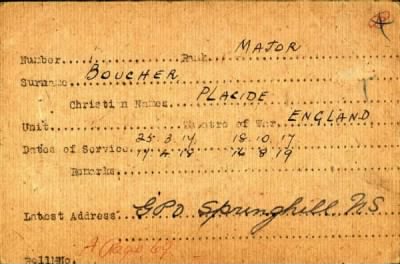 Number..........Rank. MAJOR
Surname. BOUCHER
Christian Names. PLACIDE
Unit..........Theatre of War. ENGLAND
25.3.17 18.10.17
Dates of Service. 17.4.18 16.8.19
Remarks.
Latest Address. G.P.O. Springhill NS
Roll No.